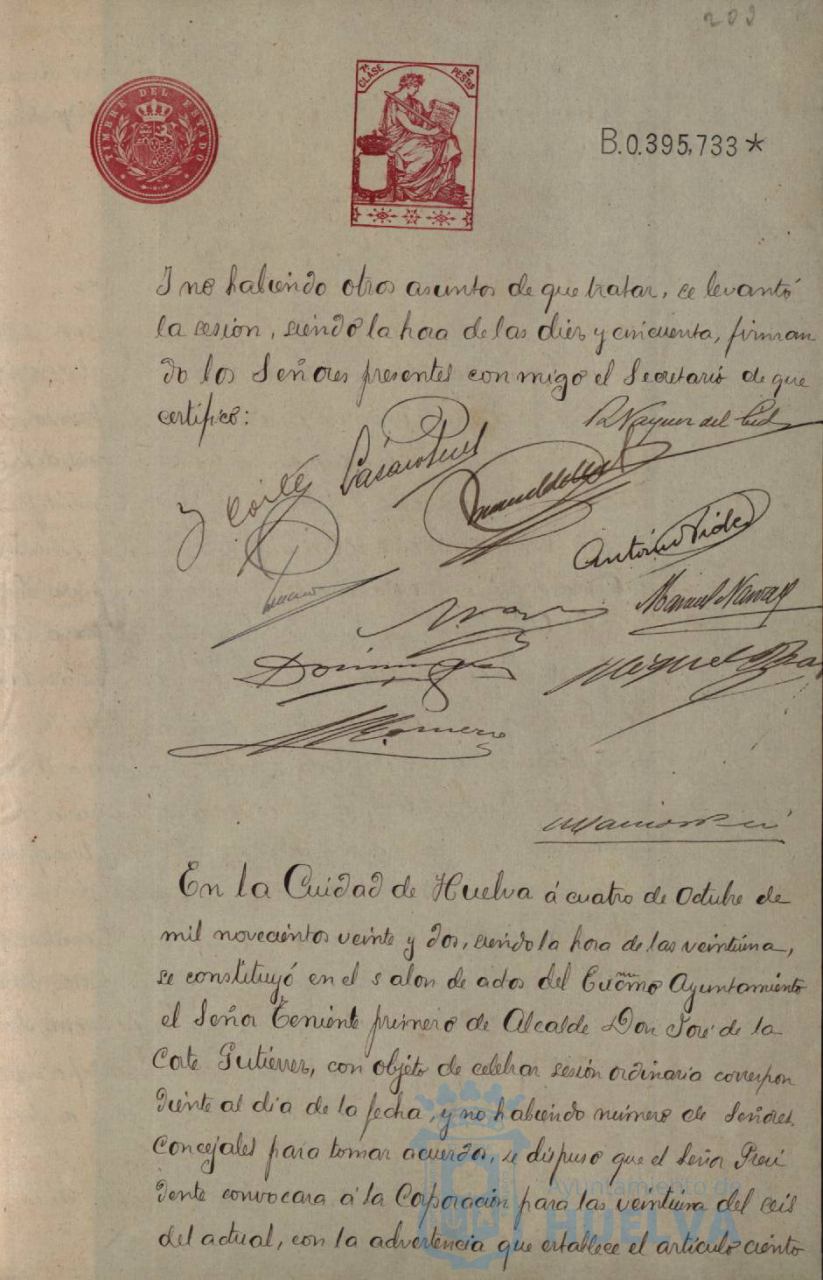 209
TIMBRE DEL ESTADO
7ª CLASE
2 PESTAS
B.0.395,733*
Y no habiendo otros asuntos de que tratar, se levantó
la sesión, siendo la hora de las diez y cincuenta, firman
do los Señores presentes conmigo el Secretario de que
certifico:
Antonio
Manuel
Dominguez
Miguel
Romero
En la Cuidad de Huelva á cuatro de Octubre de
mil novecientos veinte y dos, siendo la hora de las veintiuna,
se constituyó en el salon de actos del Excmo Ayuntamiento
el Señor Teniente primero de Alcalde Don José de la
Corte Gutiérrez, con objeto de celebrar sesión ordinaria correspon
diente al dia de la fecha, y no habiendo número de Señores
Concejales para tomar acuerdo, se dispuso que el Señor Presi
dente convocara á la Corporación para las veintiuna del seis
del actual, con la advertencia que establece el artículo ciento
Ayuntamiento de
HUELVA